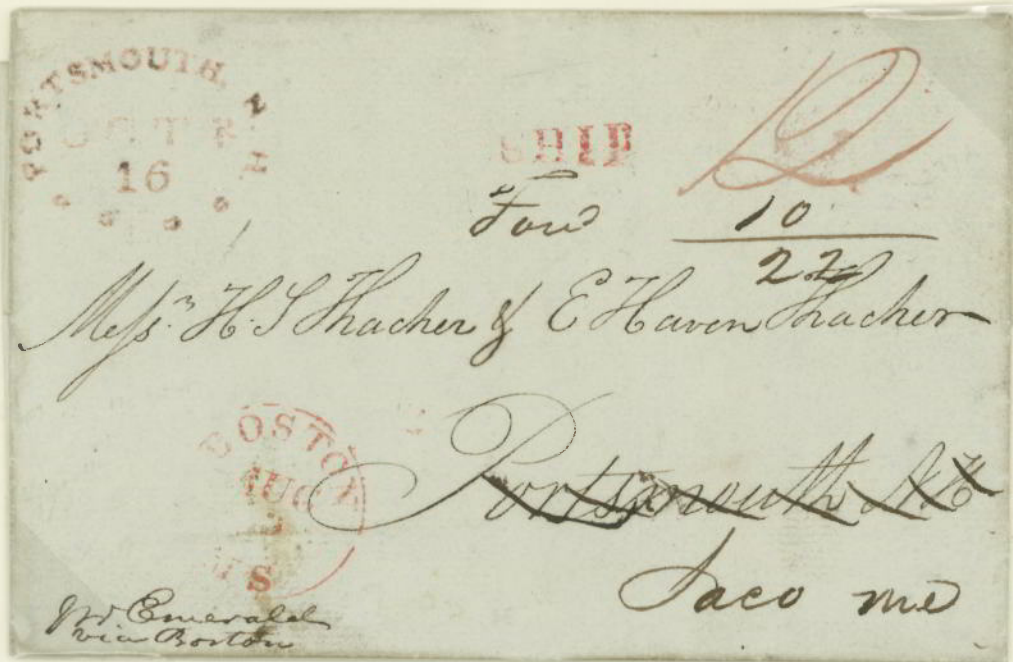 PORTSMOUTH, N H
16
SHIP
12
Forwd 10
22
Messrs. H. S Thacher & E Haven Thacher
BOSTON
AUG
MS
Portsmouth NH
Saco me
pr Emerald
via Boston